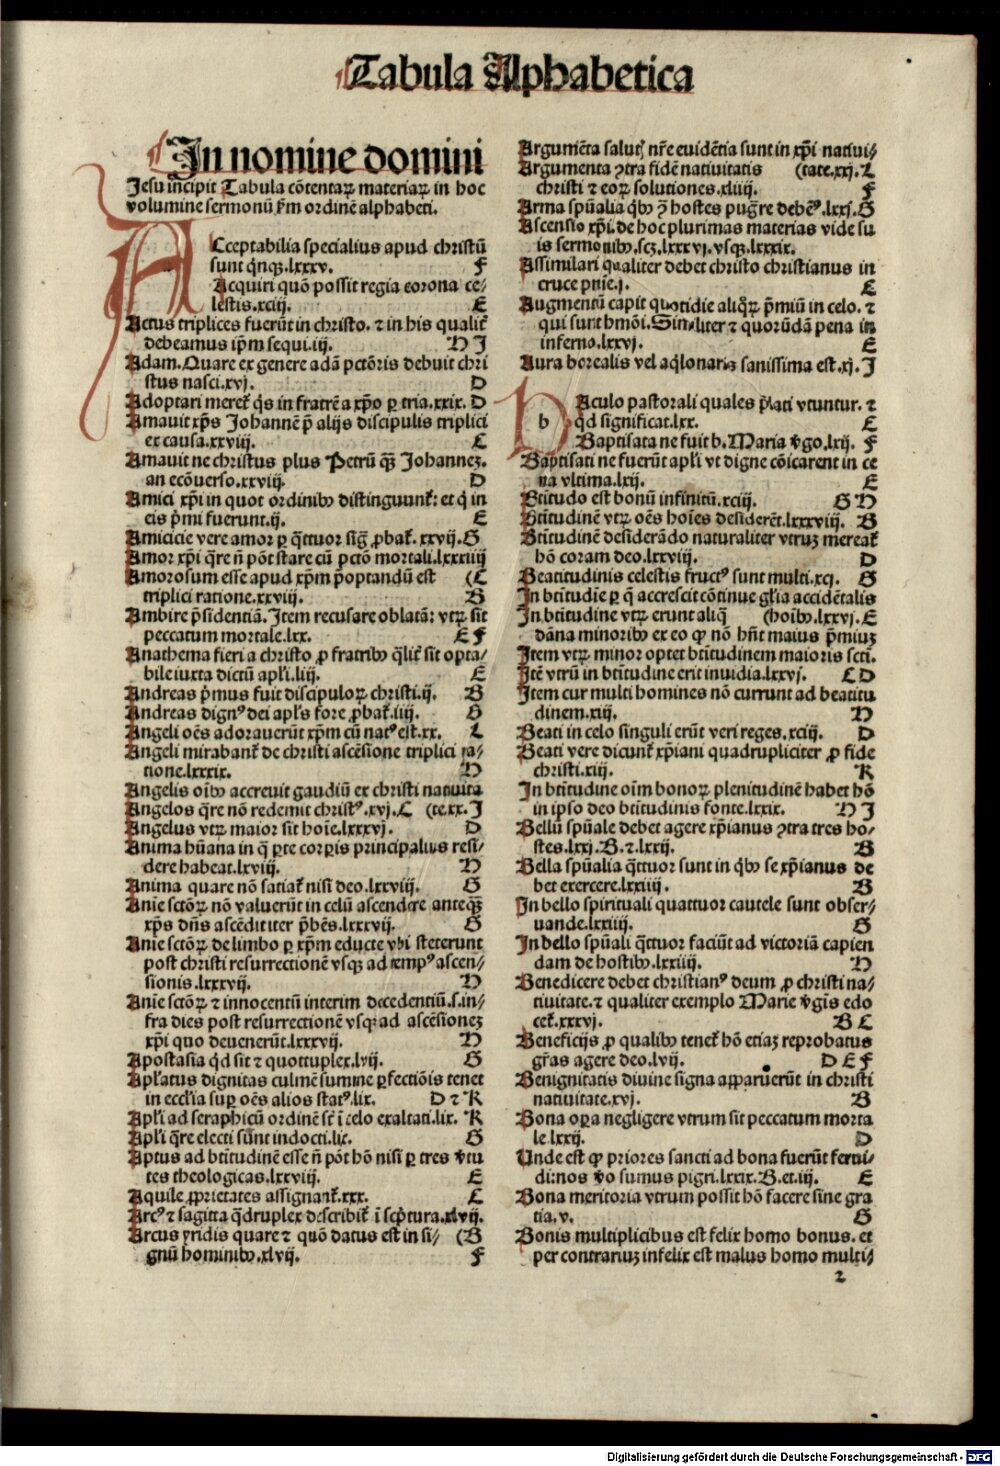 Tabula Alphabetica
In nomine domini
Jesu incipit Tabula cōtentaꝝ materiaꝝ in hoc
volumine sermonū ẜm ordinē alphabeti.
ACceptabilia specialius apud christū
sunt q̄nqꝫ.lxxxv. F
Acquiri quō possit regia corona ce-
lestis.xciij. E
Actus triplices fuerūt in christo. ⁊ in his qualit̄
debeamus ip̄m sequi.iij. H J
Adam. Quare ex genere adā pctōris debuit chri
stus nasci.xvj. D
Adoptari meret̄ q̄s in fratrē a xp̄o ꝑ tria.xxix. D
Amauit xp̄s Johannē p̄ alijs discipulis triplici
ex causa.xxviij. C
Amauit ne christus plus Petrū q̄ꝫ Johannez.
an ecōuerso.xxviij. D
Amici xp̄i in quot ordinibꝰ distinguunt̄: et q̄ in
eis p̄mi fuerunt.ij. E
Amicicie vere amor ꝑ q̄ttuor siḡ ꝓbat̄. xxvij. G
Amor xp̄i q̄re n̄ pōt stare cū pctō mortali.lxxxiiij
Amorosum esse apud xp̄m p̄optandū est (C
triplici ratione.xxviij. B
Ambire p̄sidentiā. Item recusare oblatā: vtꝝ sit
peccatum mortale.lxx. E F
Anathema fieri a christo ꝓ fratribꝰ q̄lit̄ sit opta-
bile iuxta dictū apl̄i.liij. E
Andreas p̄mus fuit discipuloꝝ christi.ij. B
Andreas dignꝰ dei apl̄s fore ꝓbat̄.iiij. G
Angeli oēs adorauerūt xp̄m cū natꝰ est.xx. L
Angeli mirabant̄ de christi ascēsione triplici ra-
tione.lxxxix. H
Angelis oībꝰ accreuit gaudiū ex christi natiuita
Angelos q̄re nō redemit christꝰ.xvj. C (te.xx. J
Angelus vtꝝ maior sit hoīe.lxxxvj. D
Anima hūana in q̄ ꝑte corꝑis principalius resi-
dere habeat.lxviij. H
Anima quare nō satiat̄ nisi deo.lxxviij. G
Anie sctōꝝ nō valuerūt in celū ascendere anteq̄ꝫ
xp̄s dn̄s ascēdit iter p̄bēs.lxxxvij. G
Anie sctōꝝ de limbo ꝑ xp̄m educte vbi steterunt
post christi resurrectionē vsqꝫ ad tempꝰ ascen-
sionis.lxxxvij. H
Anie sctōꝝ ⁊ innocentū interim decedentiū.s.in-
fra dies post resurrectionē vsqꝫ ad ascēsionez
xp̄i quo deuenerūt.lxxxvij. H
Apostasia qd̄ sit ⁊ quottuplex.lvij. G
Apl̄atus dignitas culmē summe ꝑfectiōis tenet
in eccl̄ia suꝑ oēs alios statꝰ.lix. D ⁊ K
Apl̄i ad seraphicū ordinē st̄ ī celo exaltati.lix. K
Apl̄i q̄re electi sūnt indocti.lix. G
Aptus ad btītudinē esse n̄ pōt hō nisi ꝑ tres v̄tu
tes theologicas.lxxviij. E
Aquile ꝓprietates assignant̄.xxx. C
Arcꝰ ⁊ sagitta q̄druplex describit̄ ī scp̄tura.xlvij.
Arcus yridis quare ⁊ quō datus est in si- (B
gnū hominibꝰ.xlvij. F
Argumēta salut̄ nr̄e euidētia sunt in xp̄i natiui-
Argumenta ꝯtra fidē natiuitatis (tate.xxj. L
christi ⁊ eoꝝ solutiones.xliiij. F
Arma sp̄ualia q̄bꝰ ꝯ̄ hostes puḡre debēꝰ.lxxj. G
Ascensio xp̄i. de hoc plurimas materias vide su
is sermonibꝰ.scꝫ.lxxxvj. vsqꝫ.lxxxix.
Assimilari qualiter debet christo christianus in
cruce pn̄ie.j. C
Augmentū capit quotidie aliqꝝ p̄miū in celo. ⁊
qui sunt hmōi. Similiter ⁊ quorūdā pena in
inferno.lxxvj. E
Aura borealis vel aq̄lonaris sanissima est.xj. J
b
BAculo pastorali quales p̄lati vtuntur. ⁊
qd̄ significat.lxx. C
Baptisata ne fuit b. Maria v̄go.lxij. F
Baptisati ne fuerūt apl̄i vt digne cōicarent in ce
na vltima.lxij. E
Btītudo est bonū infinitū.xciij. G H
Btītudinē vtꝝ oēs hoīes desiderēt.lxxxviij. B
Btītudinē desiderādo naturaliter vtruz mereat̄
hō coram deo.lxxviij. D
Beatitudinis celestis fructꝰ sunt multi.xcj. G
In btītudīe ꝑ q̄ accrescit cōtinue gl̄ia accidētalis
In btītudine vtꝝ erunt aliq̄ (hoībꝰ.lxxvj. E
dāna minoribꝰ ex eo ꝙ nō hn̄t maius p̄miuz
Item vtꝝ minor optet btītudinem maioris scti.
Itē vtrū in btītudine erit inuidia.lxxvj. C D
Item cur multi homines nō currunt ad beatitu
dinem.xiij. H
Beati in celo singuli erūt veri reges.xciij. D
Beati vere dicunt̄ xp̄iani quadrupliciter ꝓ fide
christi.xiij. K
In btītudine oīm bonoꝝ plenitudinē habet hō
in ipso deo btītudinis fonte.lxxix. H J
Bellū sp̄uale debet agere xp̄ianus ꝯtra tres ho-
stes.lxxj. B. ⁊.lxxij. B
Bella sp̄ualia q̄ttuor sunt in q̄bꝰ se xp̄ianus de
bet exercere.lxxiiij. B
In bello spirituali quattuor cautele sunt obser-
uande.lxxiiij. G
In bello sp̄uali q̄ttuor faciūt ad victoriā capien
dam de hostibꝰ.lxxiiij. H
Benedicere debet christianꝰ deum ꝓ christi na-
tiuitate. ⁊ qualiter exemplo Marie v̄gīs edo
cet̄.xxxvj. B C
Beneficijs ꝓ qualibꝰ tenet̄ hō etiaz reprobatus
gr̄as agere deo.lvij. D E F
Benignitatis diuine signa apparuerūt in christi
natiuitate.xvj. B
Bona oꝑa negligere vtrum sit peccatum morta
le.lxxij. D
Unde est ꝙ priores sancti ad bona fuerūt ferui-
di: nos v̄o sumus pigri.lxxix. B. et.iij. E
Bona meritoria vtrum possit hō facere sine gra
tia.v. G
Bonis multiplicibus est felix homo bonus. et
per contrariuz infelix est malus homo multi-
2
Digitalisierung gefördert durch die Deutsche Forschungsgemeinschaft - DFG